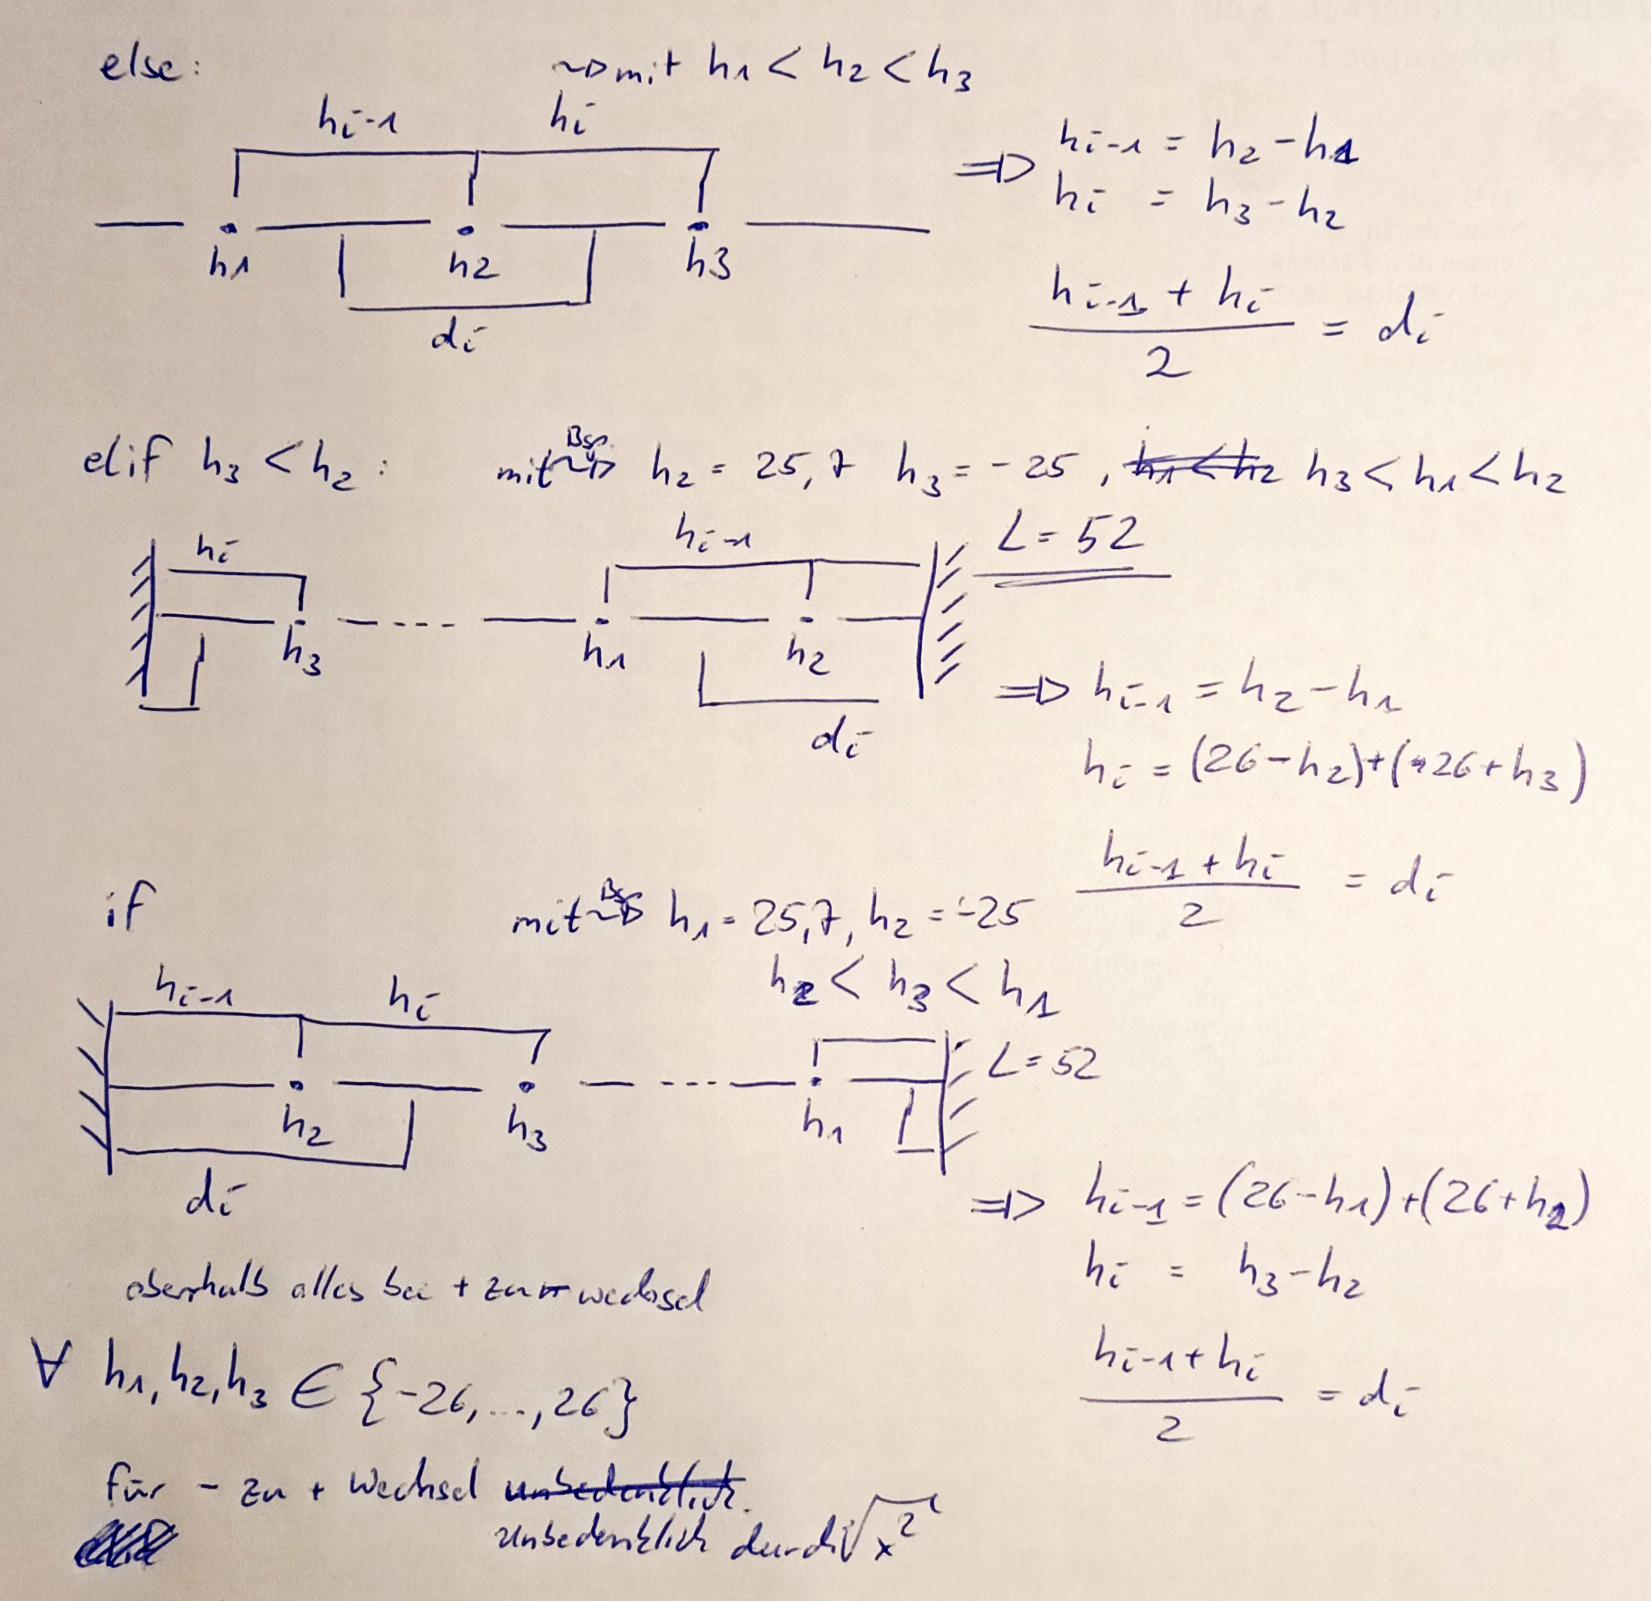 else:
⇝ mit h1 < h2 < h3
hi-1 hi
h1 h2 h3
di
⇒ hi-1 = h2 - h1
hi = h3 - h2
(hi-1 + hi) / 2 = di
elif h3 < h2 :
mit Bsp. ⇝ h2 = 25,7 h3 = -25 , h1 < h2 h3 < h1 < h2
hi hi-1
L = 52
h3 h1 h2
di
⇒ hi-1 = h2 - h1
hi = (26 - h2) + (26 + h3)
(hi-1 + hi) / 2 = di
if
mit ⇝ h1 = 25,7, h2 = -25
h2 < h3 < h1
hi-1 hi
L = 52
h2 h3 h1
di
⇒ hi-1 = (26 - h1) + (26 + h2)
hi = h3 - h2
(hi-1 + hi) / 2 = di
oberhalb alles bei + zu - wechsel
∀ h1, h2, h3 ∈ {-26, ..., 26}
für - zu + Wechsel unbedenklich.
unbedenklich durch √x²